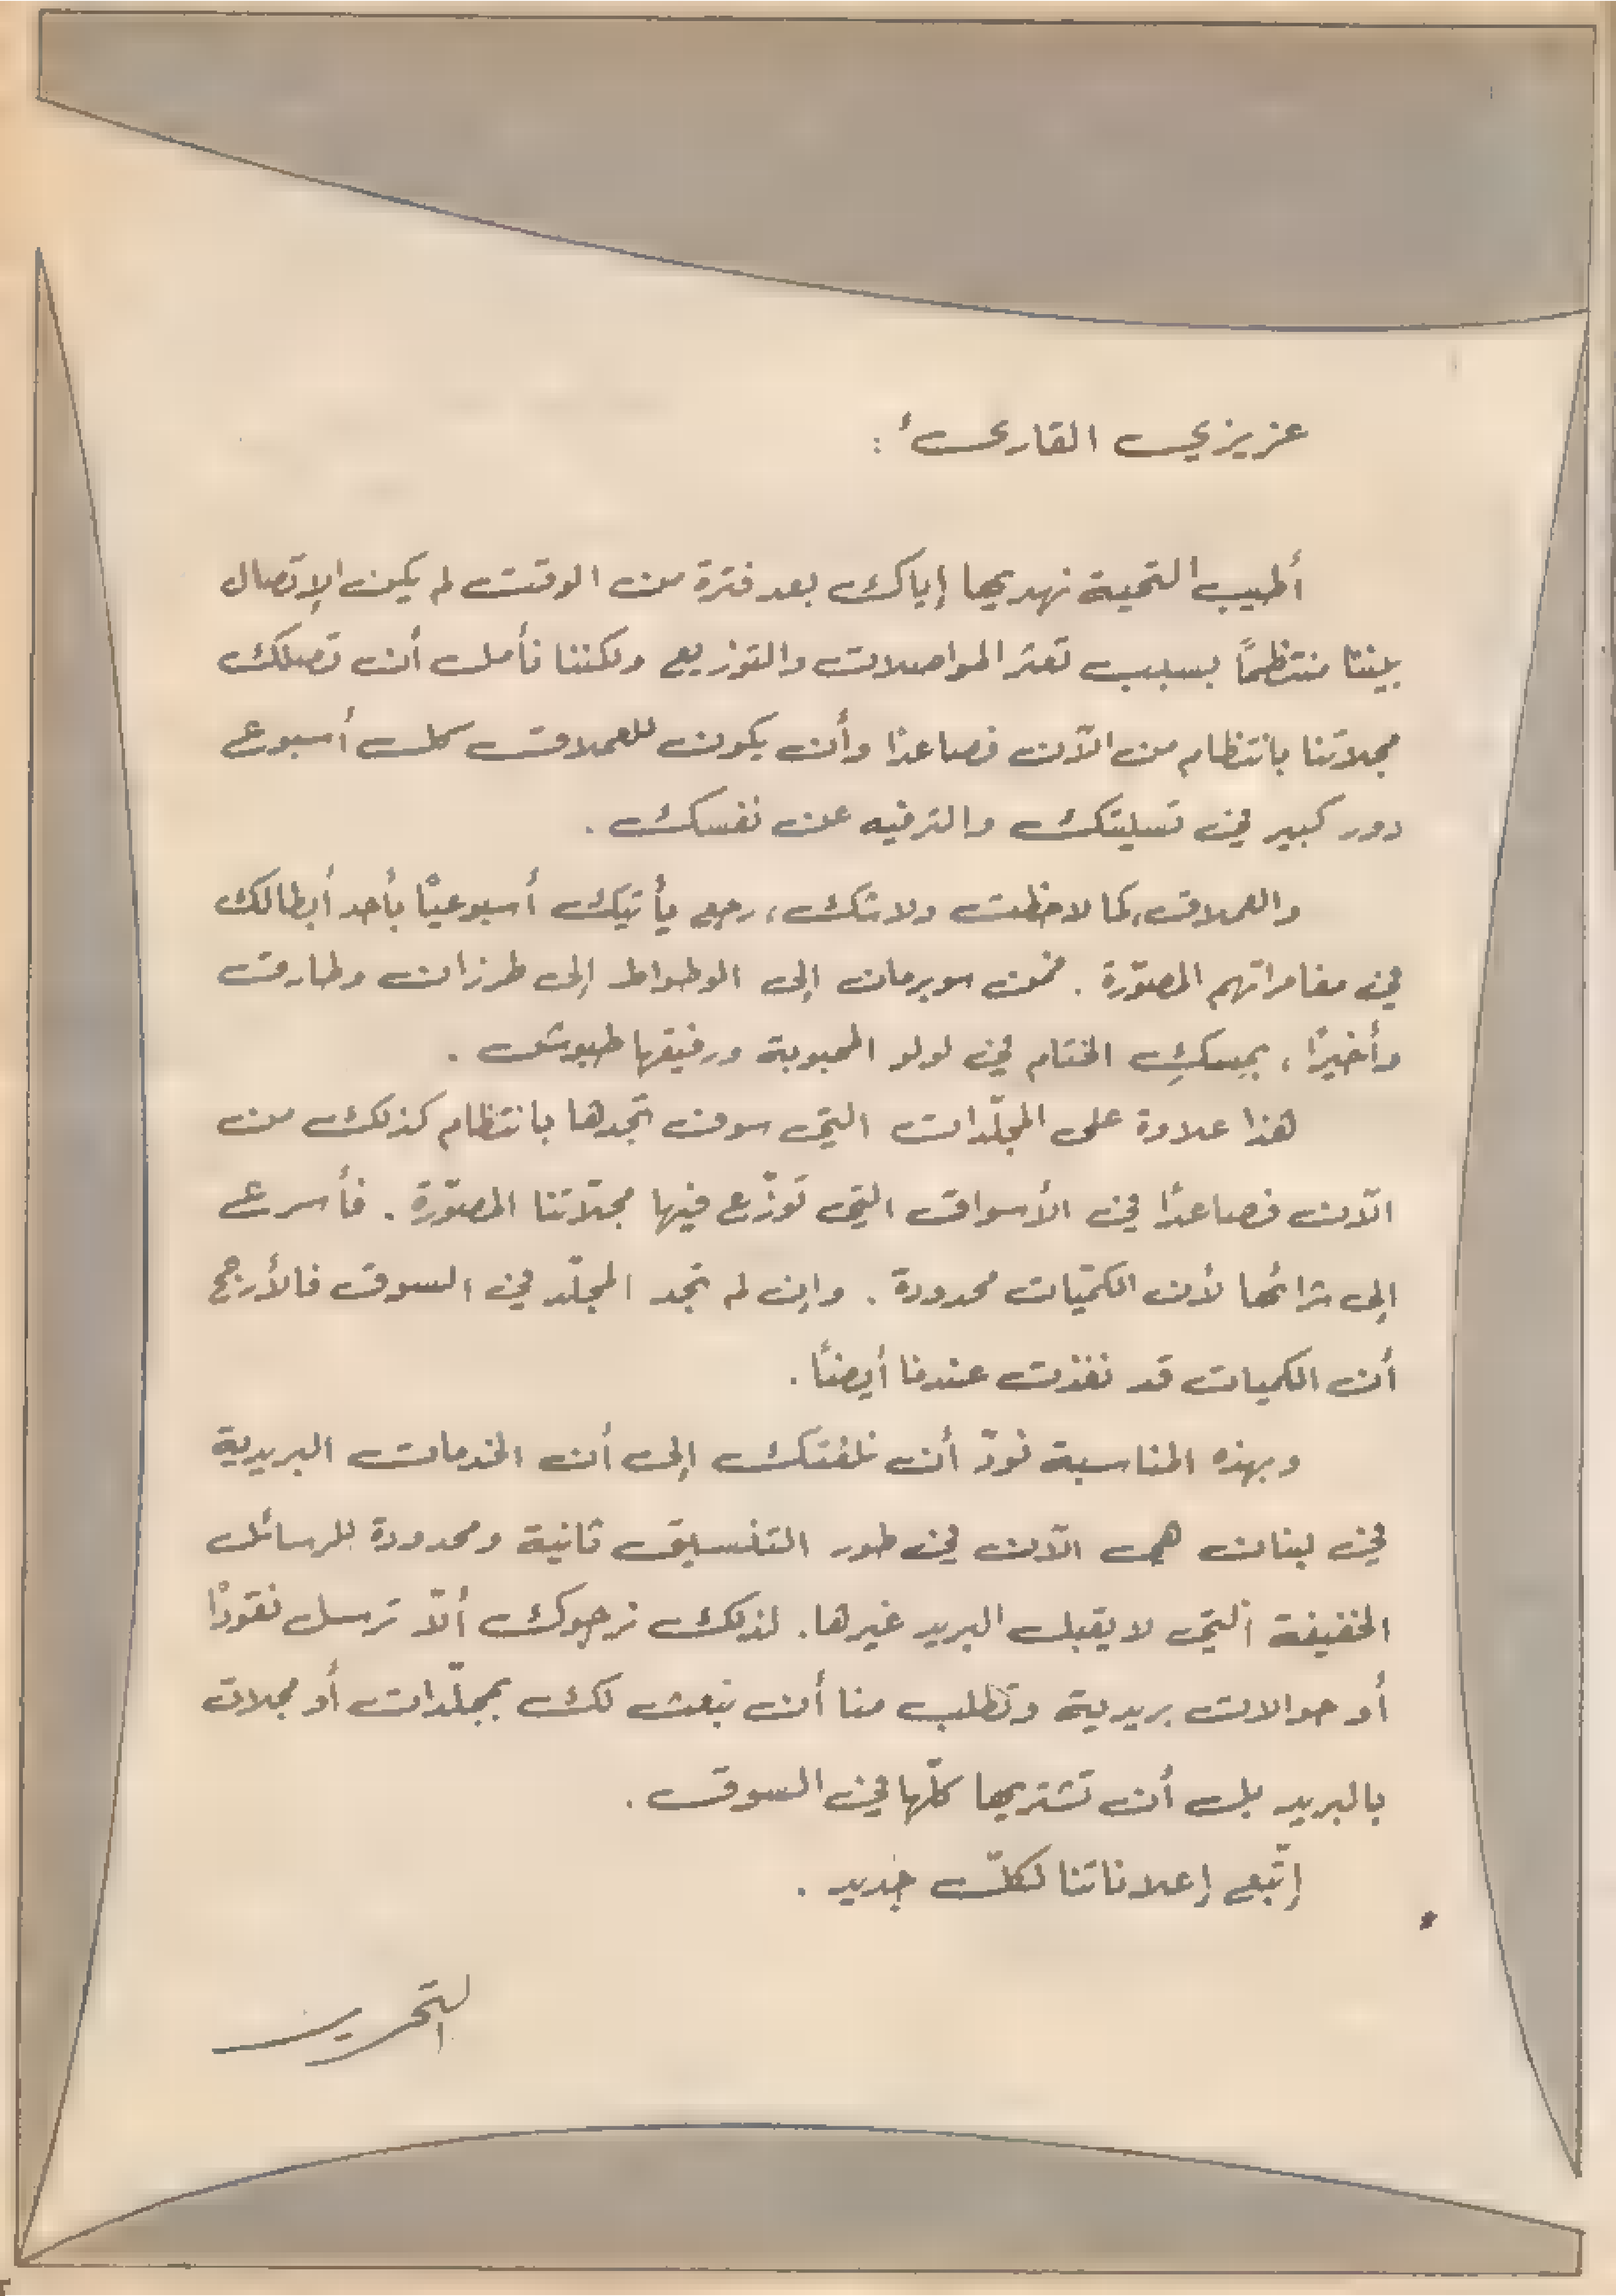 عزيزي القارئ :
أطيب التحية نهديها إياك بعد فترة من الوقت لم يكن الإتصال
بيننا منتظماً بسبب تعثر المواصلات والتوزيع ولكننا نأمل أن تصلك
مجلاتنا بانتظام من الآن فصاعدًا وأن يكون للعملاق كل أسبوع
دور كبير في تسليتك والترفيه عن نفسك .
والعملاق، كما لاحظت ولا شك، رجع يأتيك أسبوعيًا بأحد أبطالك
في مغامراتهم المصوّرة . فمن سوبرمان إلى الوطواط إلى طرزان وطارق
وأخيرًا ، بمِسكِ الختام في لولو المحبوبة ورفيقها طبوش .
هذا علاوة على المجلّدات التي سوف تجدها بانتظام كذلك من
الآن فصاعدًا في الأسواق التي توزّع فيها مجلّاتنا المصوّرة . فأسرع
إلى شرائها لأن الكميّات محدودة . وإن لم تجد المجلّد في السوق فالأرجح
أن الكميات قد نفذت عندنا أيضًا .
وبهذه المناسبة نودّ أن نلفتك إلى أن الخدمات البريدية
في لبنان هي الآن في طور التنسيق ثانية ومحدودة للرسائل
الخفيفة التي لا يقبل البريد غيرها. لذلك نرجوك ألاّ ترسل نقودًا
أو حوالات بريدية وتطلب منا أن نبعث لك بمجلّدات أو مجلات
بالبريد بل أن تشتريها كلّها في السوق .
إتّبع إعلاناتنا لكلّ جديد .
التحرير